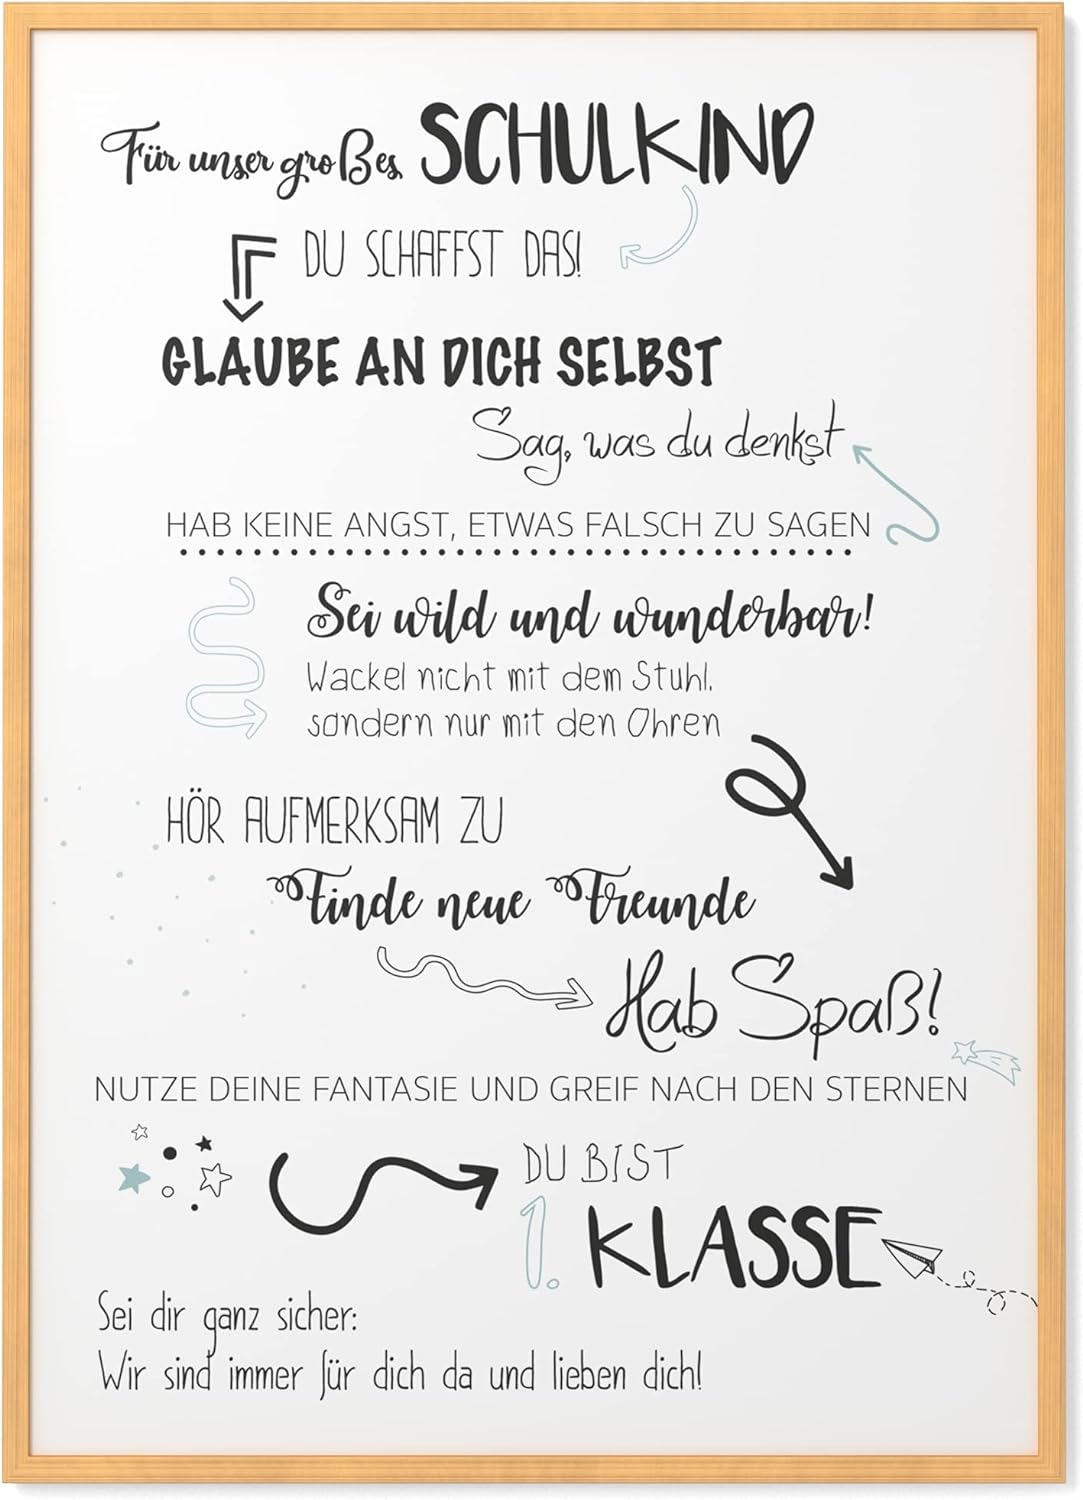 Für unser großes SCHULKIND
DU SCHAFFST DAS!
GLAUBE AN DICH SELBST
Sag, was du denkst
HAB KEINE ANGST, ETWAS FALSCH ZU SAGEN
Sei wild und wunderbar!
Wackel nicht mit dem Stuhl,
sondern nur mit den Ohren
HÖR AUFMERKSAM ZU
Finde neue Freunde
Hab Spaß!
NUTZE DEINE FANTASIE UND GREIF NACH DEN STERNEN
DU BIST
1. KLASSE
Sei dir ganz sicher:
Wir sind immer für dich da und lieben dich!